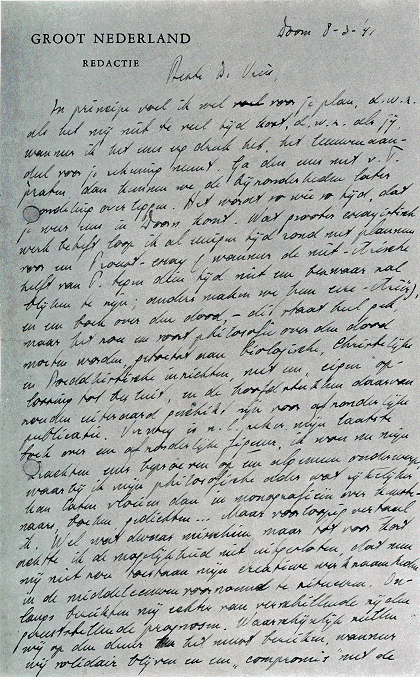 GROOT NEDERLAND
REDACTIE
Doorn 8-3-'41
Beste D. Vries,
In principe voel ik wel veel voor je plan, d.w.z.
als het mij niet te veel tijd kost, d.w.z. als jij,
wanneer ik het eens erg druk heb, het leeuwenaan-
deel voor je rekening neemt. Ga dus eens met v. P.
praten, dan kunnen we de bijzonderheden later
overleggen. Het wordt zo wie zo tijd, dat
je weer eens in Doorn komt. Wat grootere essayistische
werk betreft loop ik al eenigen tijd rond met plannen
voor een Proust-essay (wanneer de niet-Arische
helft van P. tegen dien tijd niet een bezwaar zal
blijken te zijn; anders maken we hem eere-Ariër),
en een boek over den dood, – die staat heel
naar het zou een soort philosofie over den dood
moeten worden, getoetst aan biologische, Christelijke
en Boeddhistische inzichten, met een "eigen" op-
lossing tot besluit, en de hoofdstukken daarvan
zouden uiteraard geschikt zijn voor afzonderlijke
publicatie. Vestdijk is n.l. zeker mijn laatste
boek over een afzonderlijke figuur, ik wou nu mijn
krachten eens beproeven op een algemeen onderwerp
waarbij ik mijn philosofische ader wat rijkelijker
kan laten vloeien dan in monografieën over kunste-
naars, boeken, gedichten... Maar voorloopig vertaal
ik. Wel wat dwaas misschien, maar tot voor kort
achtte ik de mogelijkheid niet uitgesloten, dat men
mij niet zou toestaan mijn creatieve werkzaamheden
in de middeleeuwen voornoemd te situeeren. On-
langs bereikten mij echter van verschillende zijden
geruststellende prognosen. Waarschijnlijk zullen
wij op den duur het meest bereiken, wanneer
wij solidair blijven en een "compromis" met de